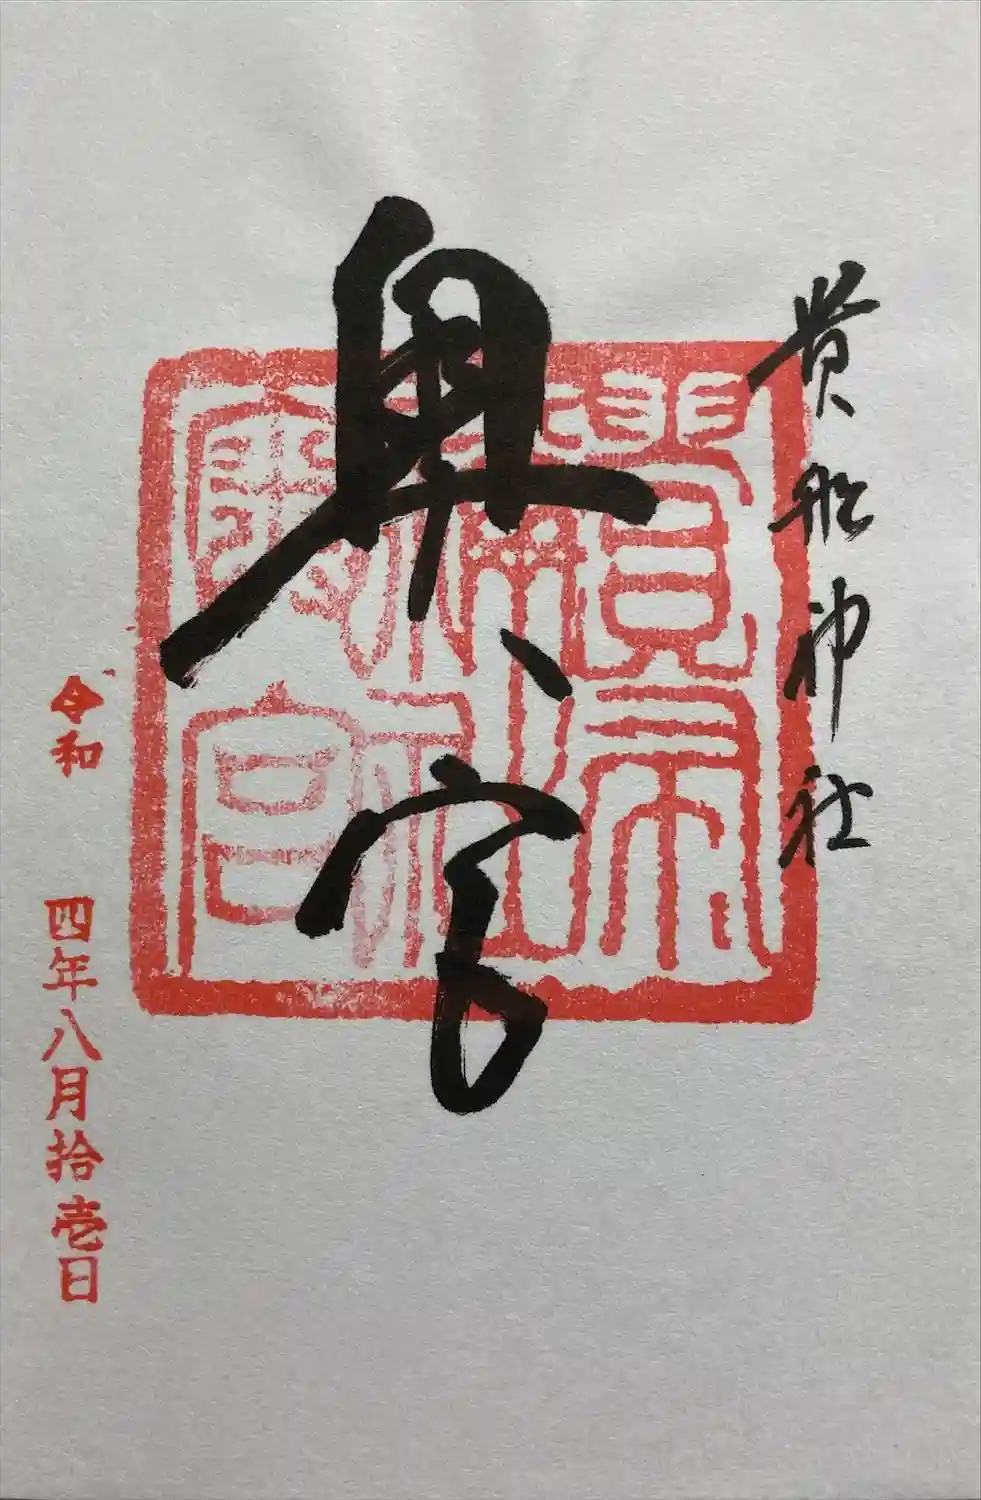 貴船神社
奥宮
令和 四年八月拾壱日